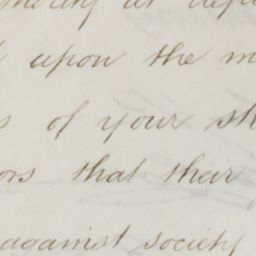 upon the m
of your sh
ors that their
against society